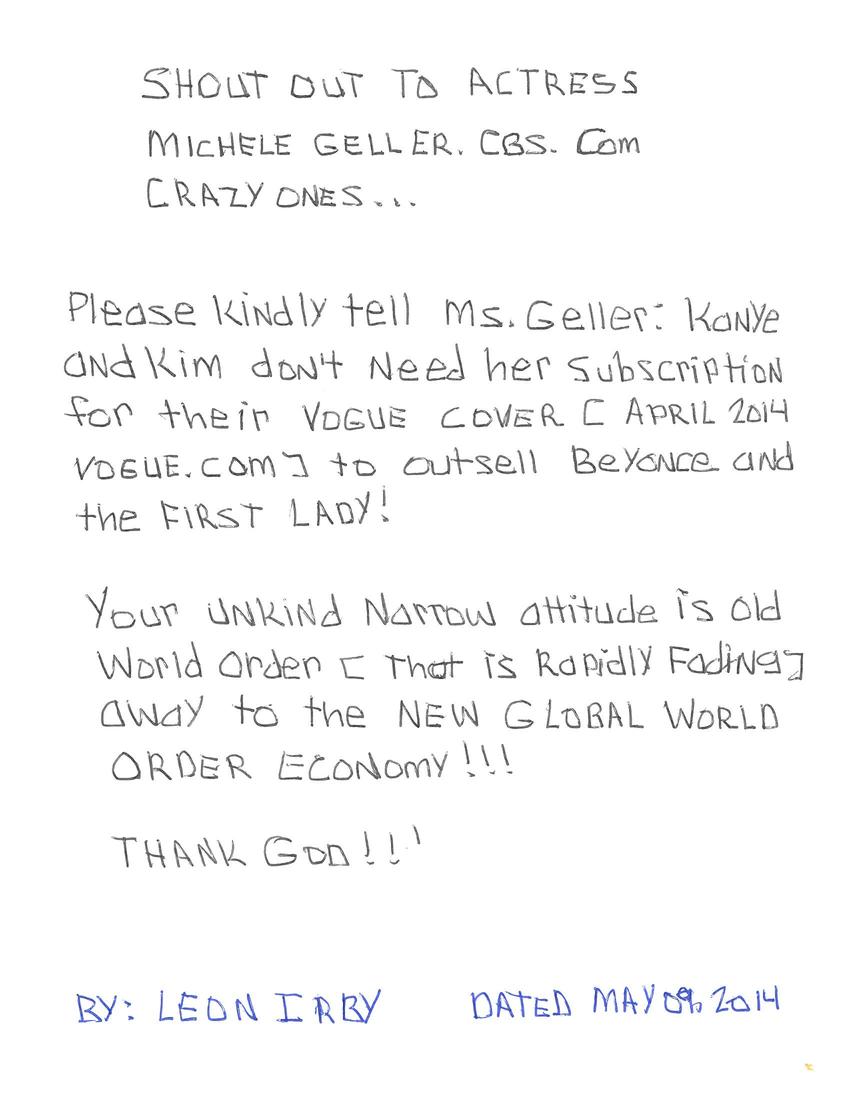 SHOUT OUT TO ACTRESS
MICHELE GELLER. CBS. Com
CRAZY ONES...
Please kindly tell Ms. Geller: Kanye
and Kim don't Need her Subscription
for their VOGUE COVER [ APRIL 2014
VOGUE.COM] to outsell Beyonce and
the FIRST LADY!
Your UNKIND Narrow attitude is old
World Order [ That is Rapidly Fading]
away to the NEW GLOBAL WORLD
ORDER ECONOMY!!!
THANK GOD!!!
BY: LEON IRBY DATED MAY 09, 2014